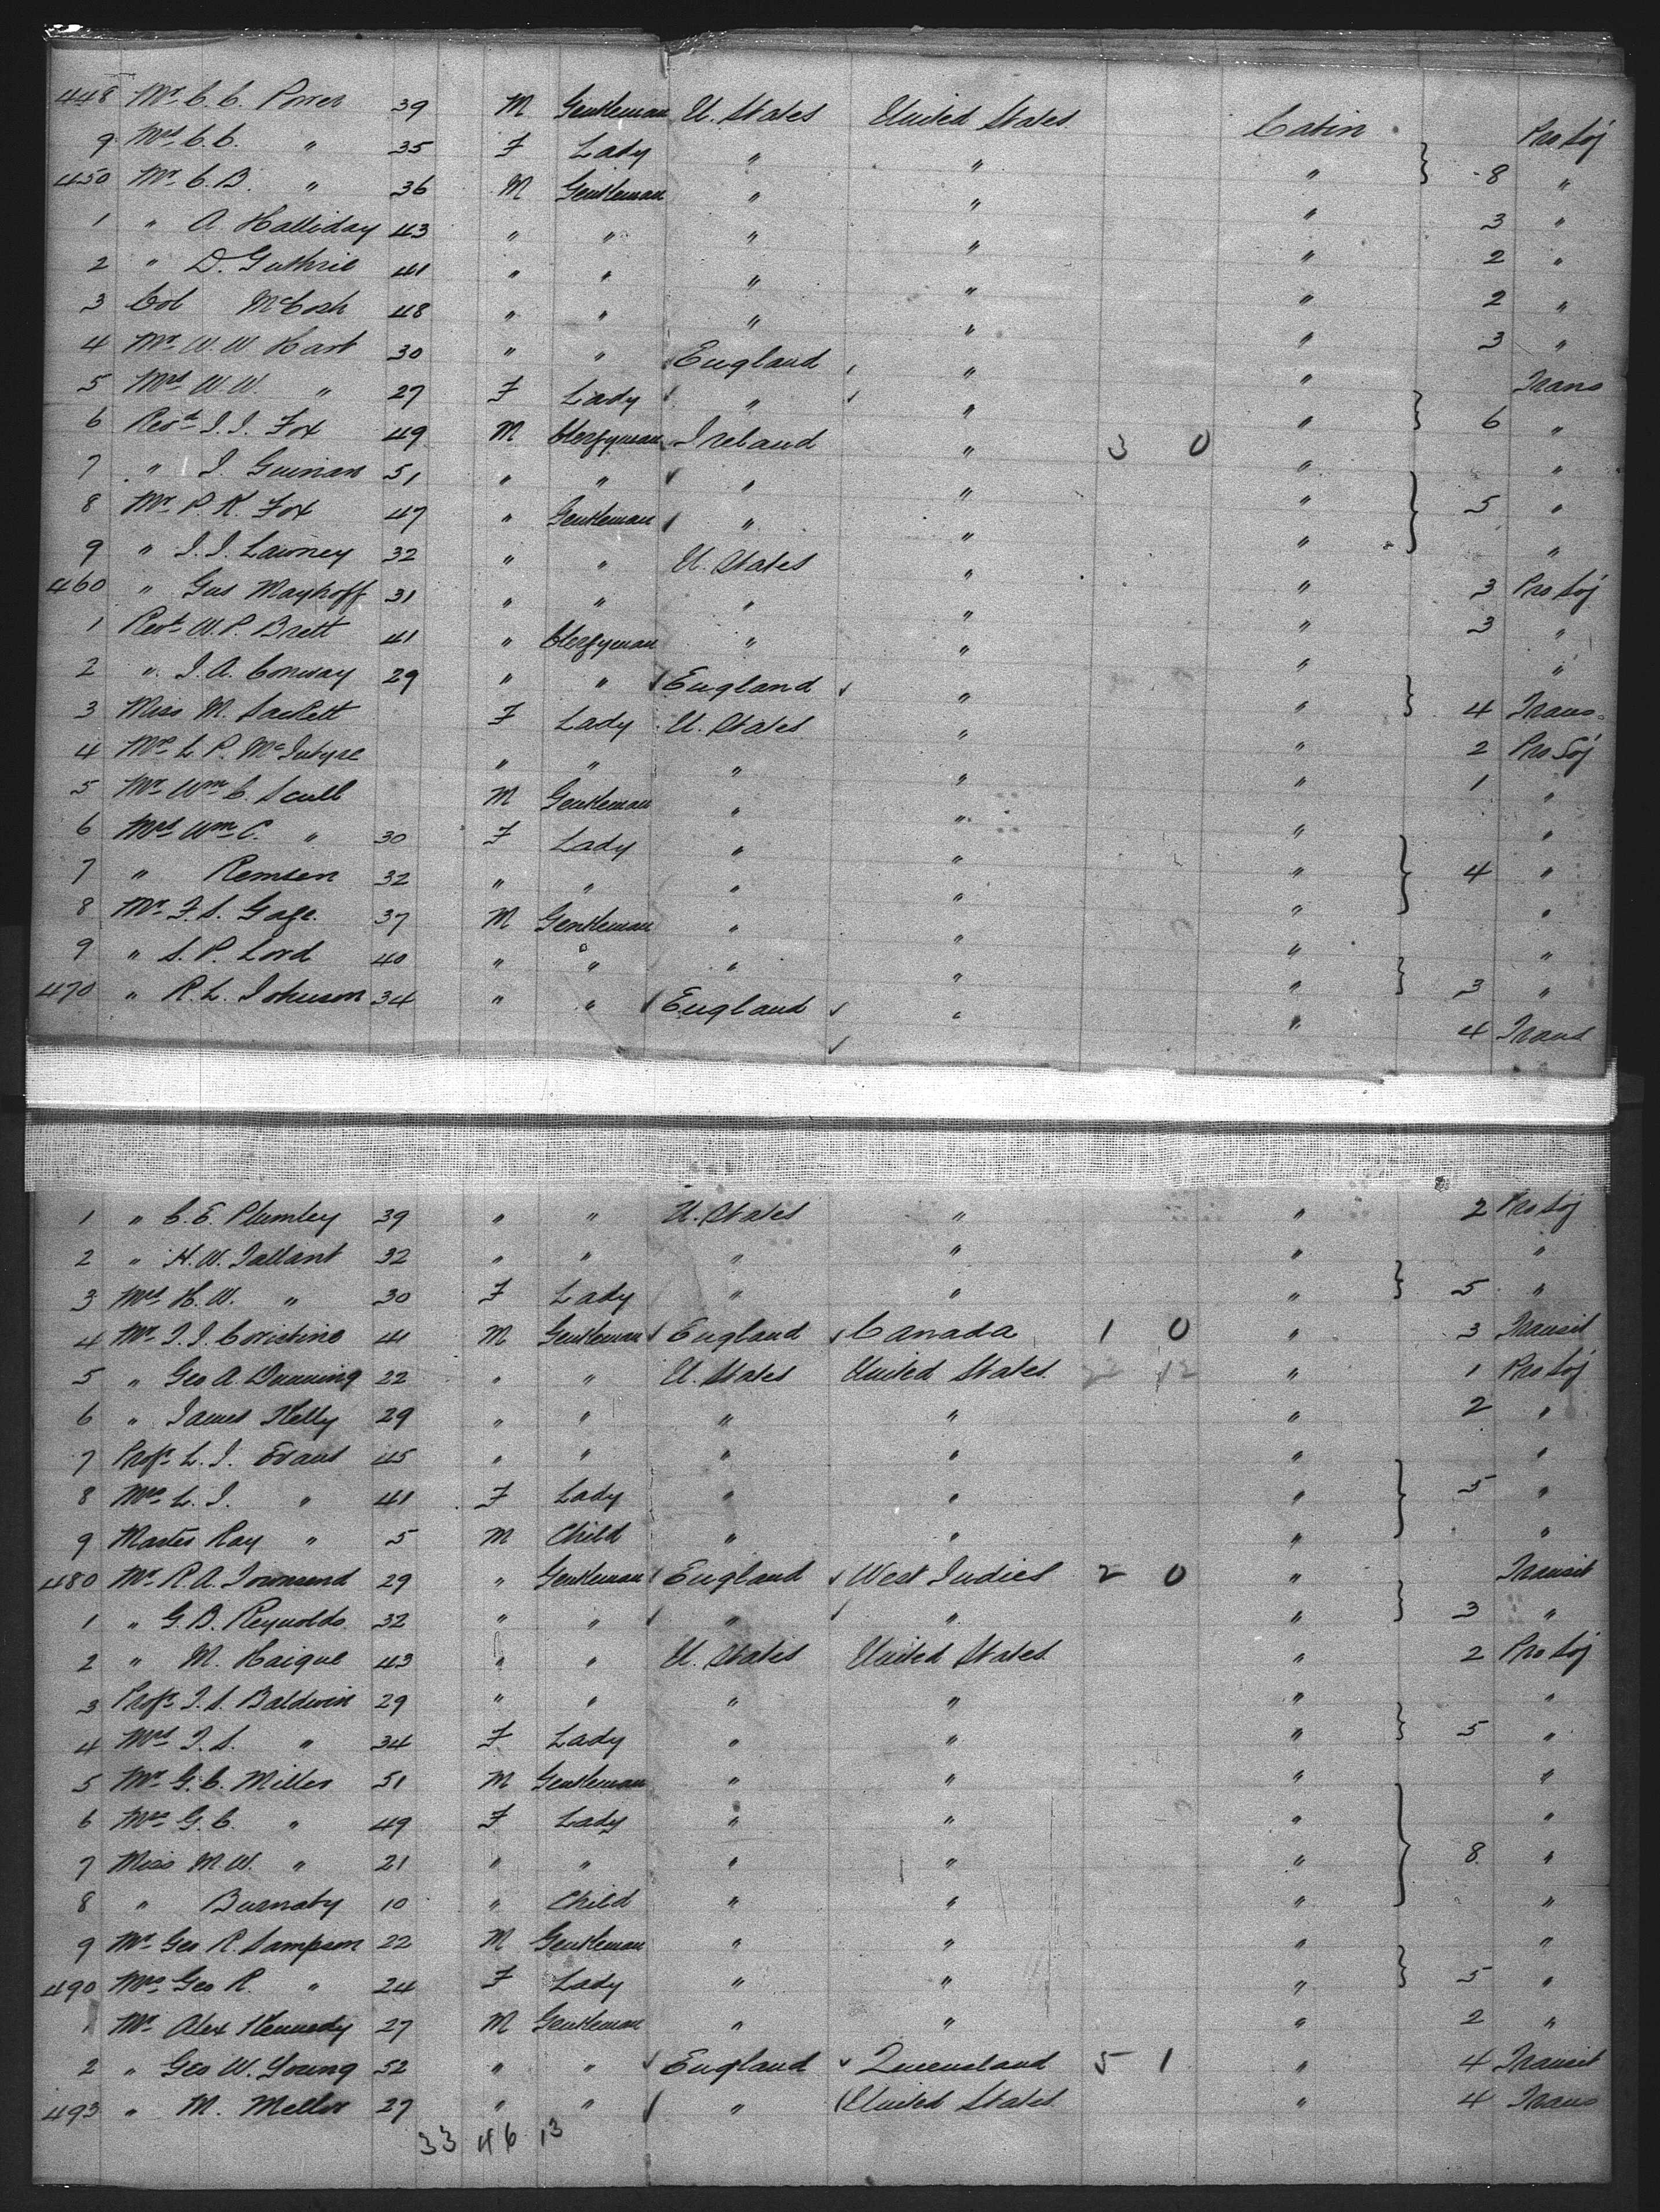 448 Mr C. C. Porter 39 M Gentleman U. States United States Cabin Pro Soj
9 Mrs C. C. " 35 F Lady " " " } 8 "
450 Mr C. B. " 36 M Gentleman " " " "
1 " A Halliday 43 " " " " " 3 "
2 " D. Guthrie 41 " " " " " 2 "
3 Col McCosh 48 " " " " " 2 "
4 Mr W. W. Hart 30 " " England " " 3 Trans
5 Mrs W. W. " 27 F Lady " " " } 6 "
6 Revd J. J. Fox 49 M Clergyman Ireland " 3 0 " "
7 " J. Guinan 51 " " " " " } 5 "
8 Mr P. K. Fox 47 " Gentleman " " " "
9 " J. J. Lawney 32 " " U. States " " 3 Pro Soj
460 " Gus Mayhoff 31 " " " " " 3 "
1 Revd W. P. Brett 41 " Clergyman " " " "
2 " J. A. Conway 29 " " England " " } 4 Trans
3 Miss M. Sackett F Lady U. States " " 2 Pro Soj
4 Mrs L. P. McIntyre " " " " " 1 "
5 Mr Wm C. Scull M Gentleman " " " "
6 Mrs Wm C. " 30 F Lady " " " } 4 "
7 " Remsen 32 " " " " " "
8 Mr F. S. Gage 37 M Gentleman " " " "
9 " S. P. Lord 40 " " " " " } 3 "
470 " R. L. Johnson 34 " " England " " 4 Trans
1 " C. E. Plumley 39 " " U. States " " 2 Pro Soj
2 " H. W. Tallant 32 " " " " " "
3 Mrs H. W. " 30 F Lady " " " } 5 "
4 Mr J. J. Coristine 41 M Gentleman England Canada 1 0 " 3 Transit
5 " Geo A. Dunning 22 " " U. States United States 22 12 " 1 Pro Soj
6 " James Kelly 29 " " " " " 2 "
7 Profr L. J. Evans 45 " " " " " "
8 Mrs L. J. " 41 F Lady " " " } 5 "
9 Master Ray " 5 M Child " " " "
480 Mr R. A. Townsend 29 " Gentleman England West Indies 2 0 " Transit
1 " G. B. Reynolds 32 " " " " " } 3 "
2 " M. Haigue 43 " " U. States United States " 2 Pro Soj
3 Profr J. S. Baldwin 29 " " " " " "
4 Mrs J. S. " 34 F Lady " " " } 5 "
5 Mr G. C. Miller 51 M Gentleman " " " "
6 Mrs G. C. " 49 F Lady " " " "
7 Miss M. W. " 21 " " " " " } 8 "
8 " Burnaby 10 " Child " " " "
9 Mr Geo R. Sampson 22 M Gentleman " " " "
490 Mrs Geo R. " 24 F Lady " " " } 5 "
1 Mr Alex Kennedy 27 M Gentleman " " " 2 "
2 " Geo W. Young 52 " " England Queensland 5 1 " 4 Transit
493 " M. Mellor 27 " " " United States " 4 Trans
33 46 13